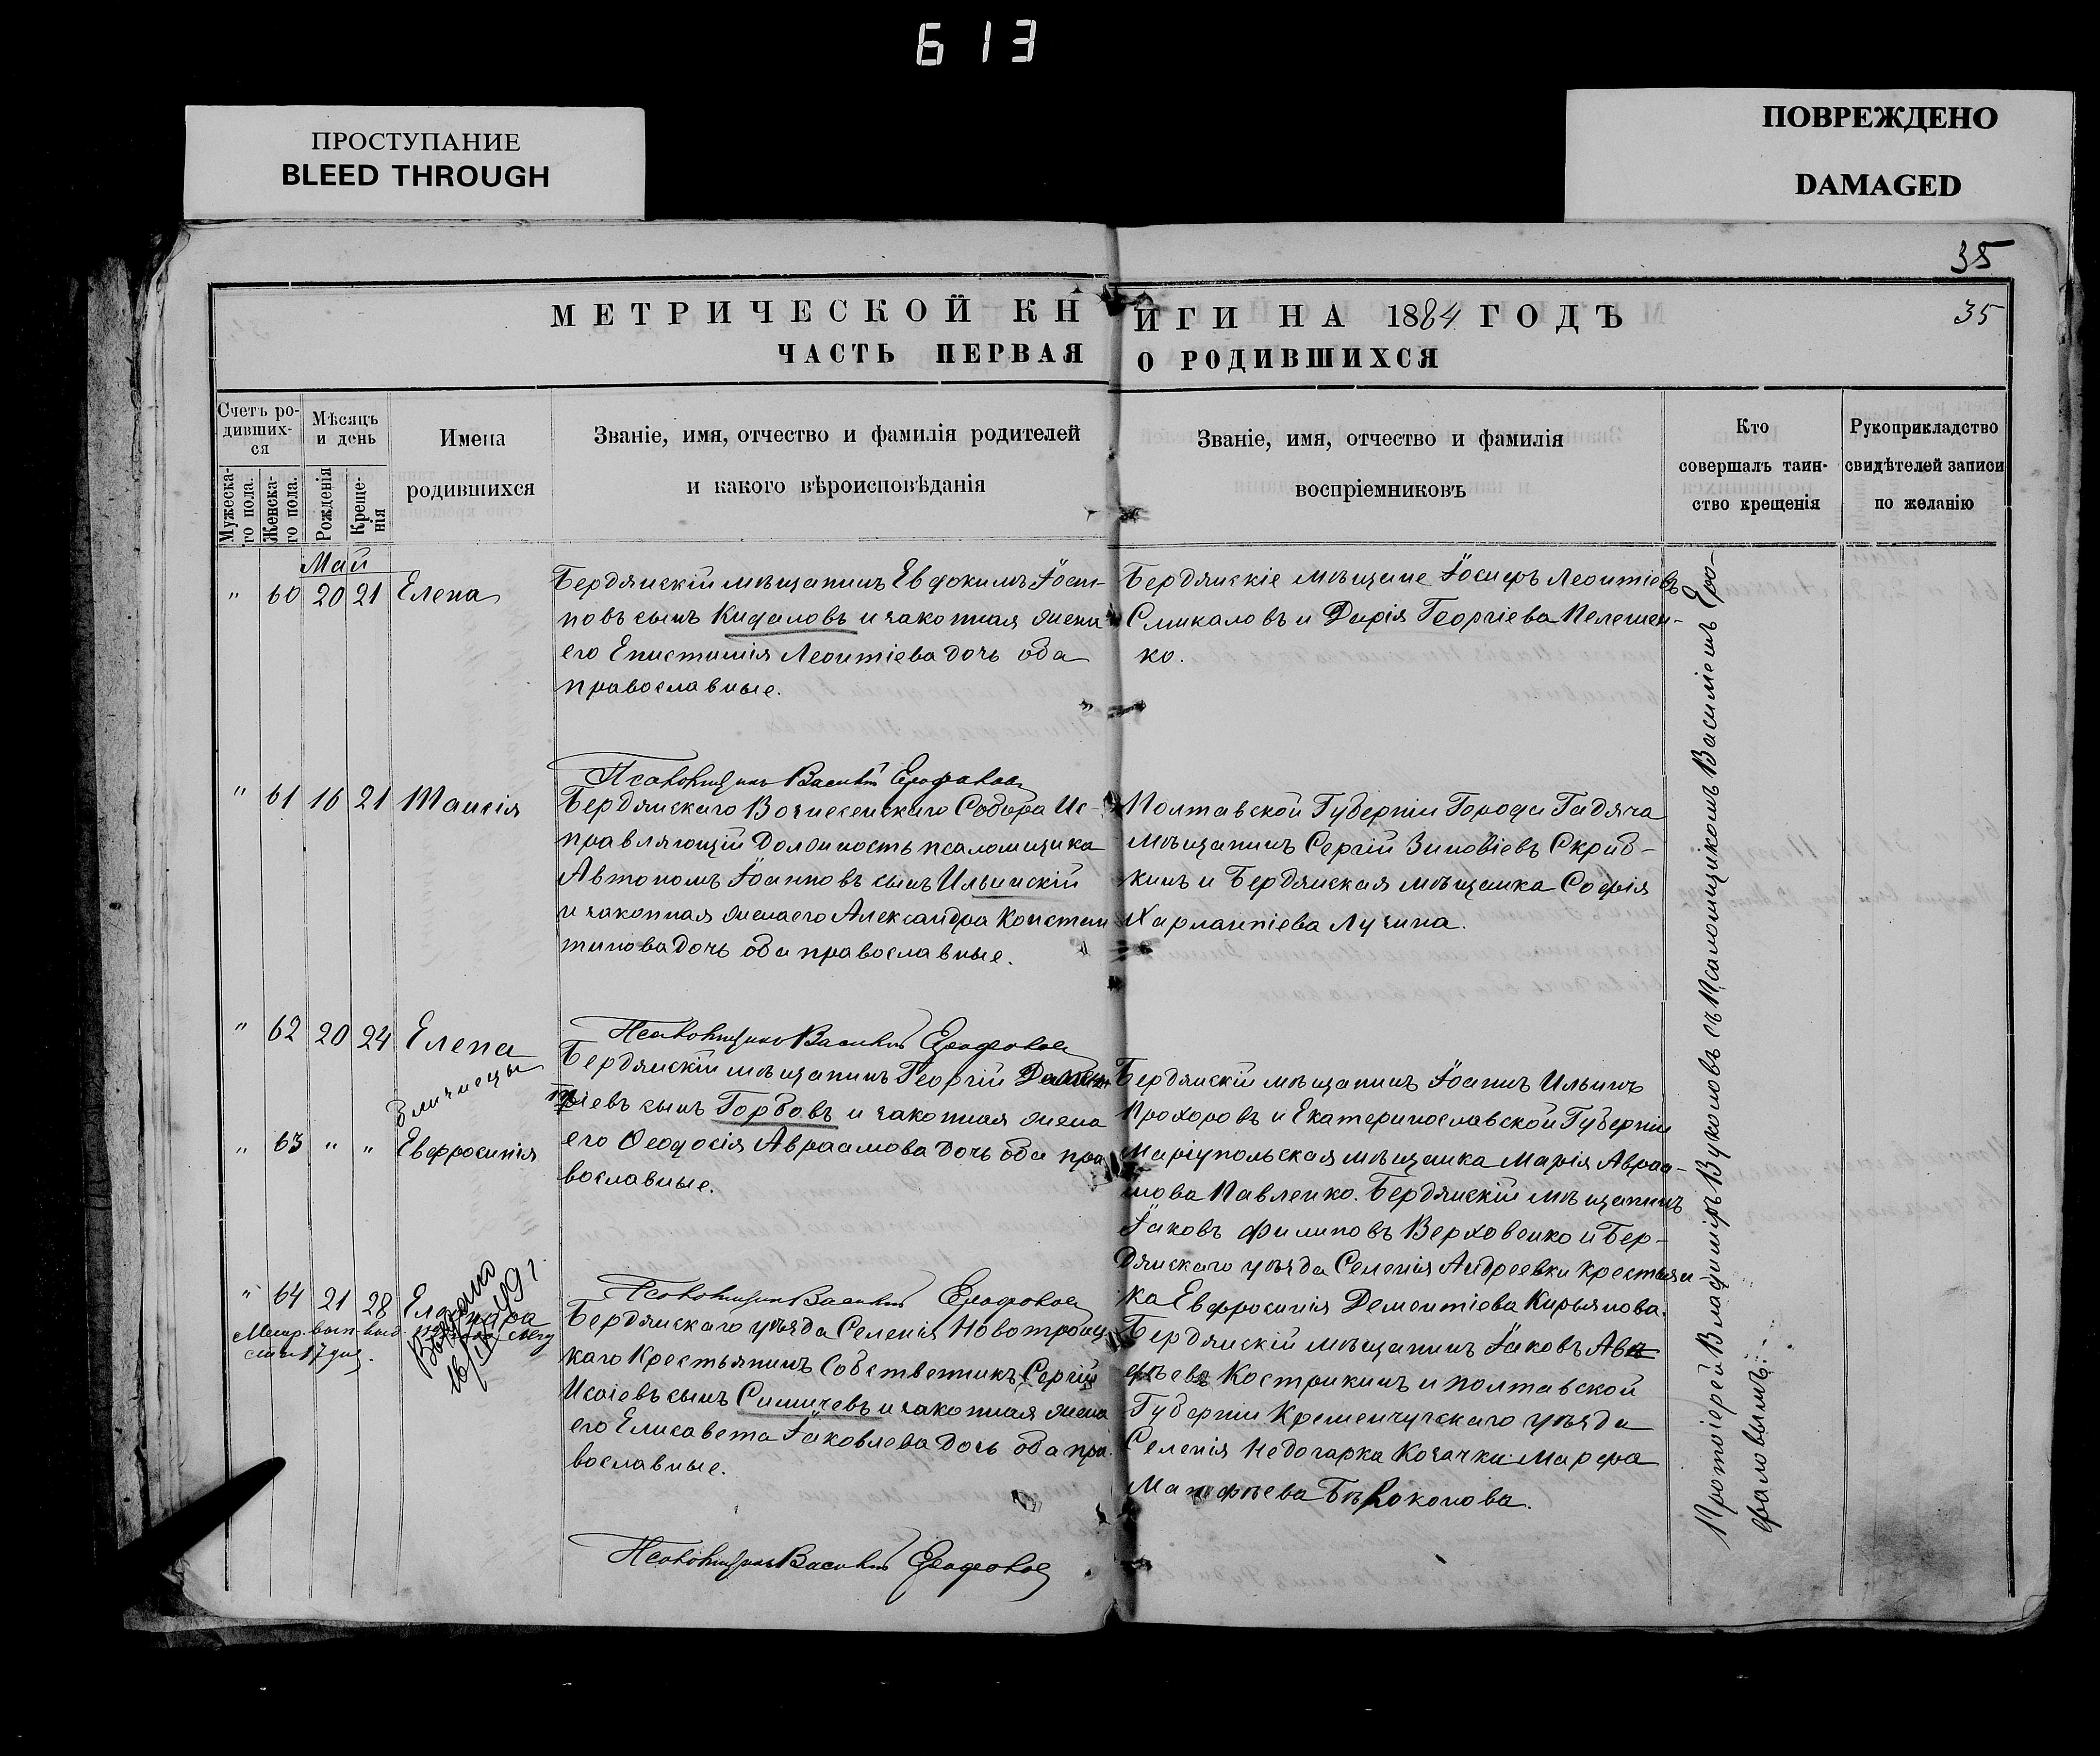 613
ПРОСТУПАНИЕ
BLEED THROUGH
ПОВРЕЖДЕНО
DAMAGED
35
МЕТРИЧЕСКОЙ КНИГИ НА 1884 ГОДЪ
35
ЧАСТЬ ПЕРВАЯ О РОДИВШИХСЯ
Счетъ ро-
дивших-
ся
Мужеска-
го пола.
Женска-
го пола.
Мѣсяцъ
и день
Рожденія
Креще-
нія
Имена
родившихся
Званіе, имя, отчество и фамилія родителей
и какого вѣроисповѣданія
Званіе, имя, отчество и фамилія
воспріемниковъ
Кто
совершалъ таин-
ство крещенія
Рукоприкладство
свидѣтелей записи
по желанію
Май
" 60 20 21 Елена
Бердянскій мѣщанинъ Евдокимъ Іоси-
повъ сынъ Кидаловъ и законная жена
его Епистимія Леонтіева дочь оба
православные.
Бердянскіе мѣщане Іосифъ Леонтіевъ
Смикаловъ и Дарія Георгіева Пелешен-
ко.
Псаломщикъ Василій Ерофаловъ
" 61 16 21 Таисія
Бердянскаго Вознесенскаго Собора Ис-
правляющій должность псаломщика
Автономъ Іоанновъ сынъ Ильинскій
и законная жена его Александра Констан
тинова дочь оба православные.
Полтавской Губерніи Города Гадяча
мѣщанинъ Сергій Зиновіевъ Скриб-
кинъ и Бердянская мѣщанка Софія
Харлампіева Лучина.
Псаломщикъ Василій Ерофаловъ
" 62 20 24 Елена
близнецы
" 63 " " Евфросинія
Бердянскій мѣщанинъ Георгій
ріевъ сынъ Горбовъ и законная жена
его Ѳеодосія Авраамова дочь оба пра
вославные.
Бердянскій мѣщанинъ Іоаннъ Ильинъ
Прохоровъ и Екатеринославской Губерніи
Маріупольская мѣщанка Марія Авраа-
мова Павленко. Бердянскій мѣщанинъ
Іаковъ Филиповъ Верховенко и Бер-
дянскаго уѣзда Селенія Андреевки крестьян-
ка Евфросинія Дементіева Кирьянова.
Псаломщикъ Василій Ерофаловъ
" 64 21 28 Еленара
Метр. вып. выд.
17
Выдано
Бердянскаго уѣзда Селенія Новотроиц
каго Крестьянинъ Собственникъ Сергій
Исаіевъ сынъ Симичевъ и законная жена
его Елисавета Іаковлева дочь оба пра
вославные.
Бердянскій мѣщанинъ Іаковъ
фѣевъ Кострикинъ и Полтавской
Губерніи Кременчугскаго уѣзда
Селенія Недогарка Козачка Марфа
Матфѣева Бѣлоконова.
Псаломщикъ Василій Ерофаловъ
Протоіерей Владиміръ Вуколовъ съ Псаломщикомъ Василіемъ Еро-
фаловымъ.